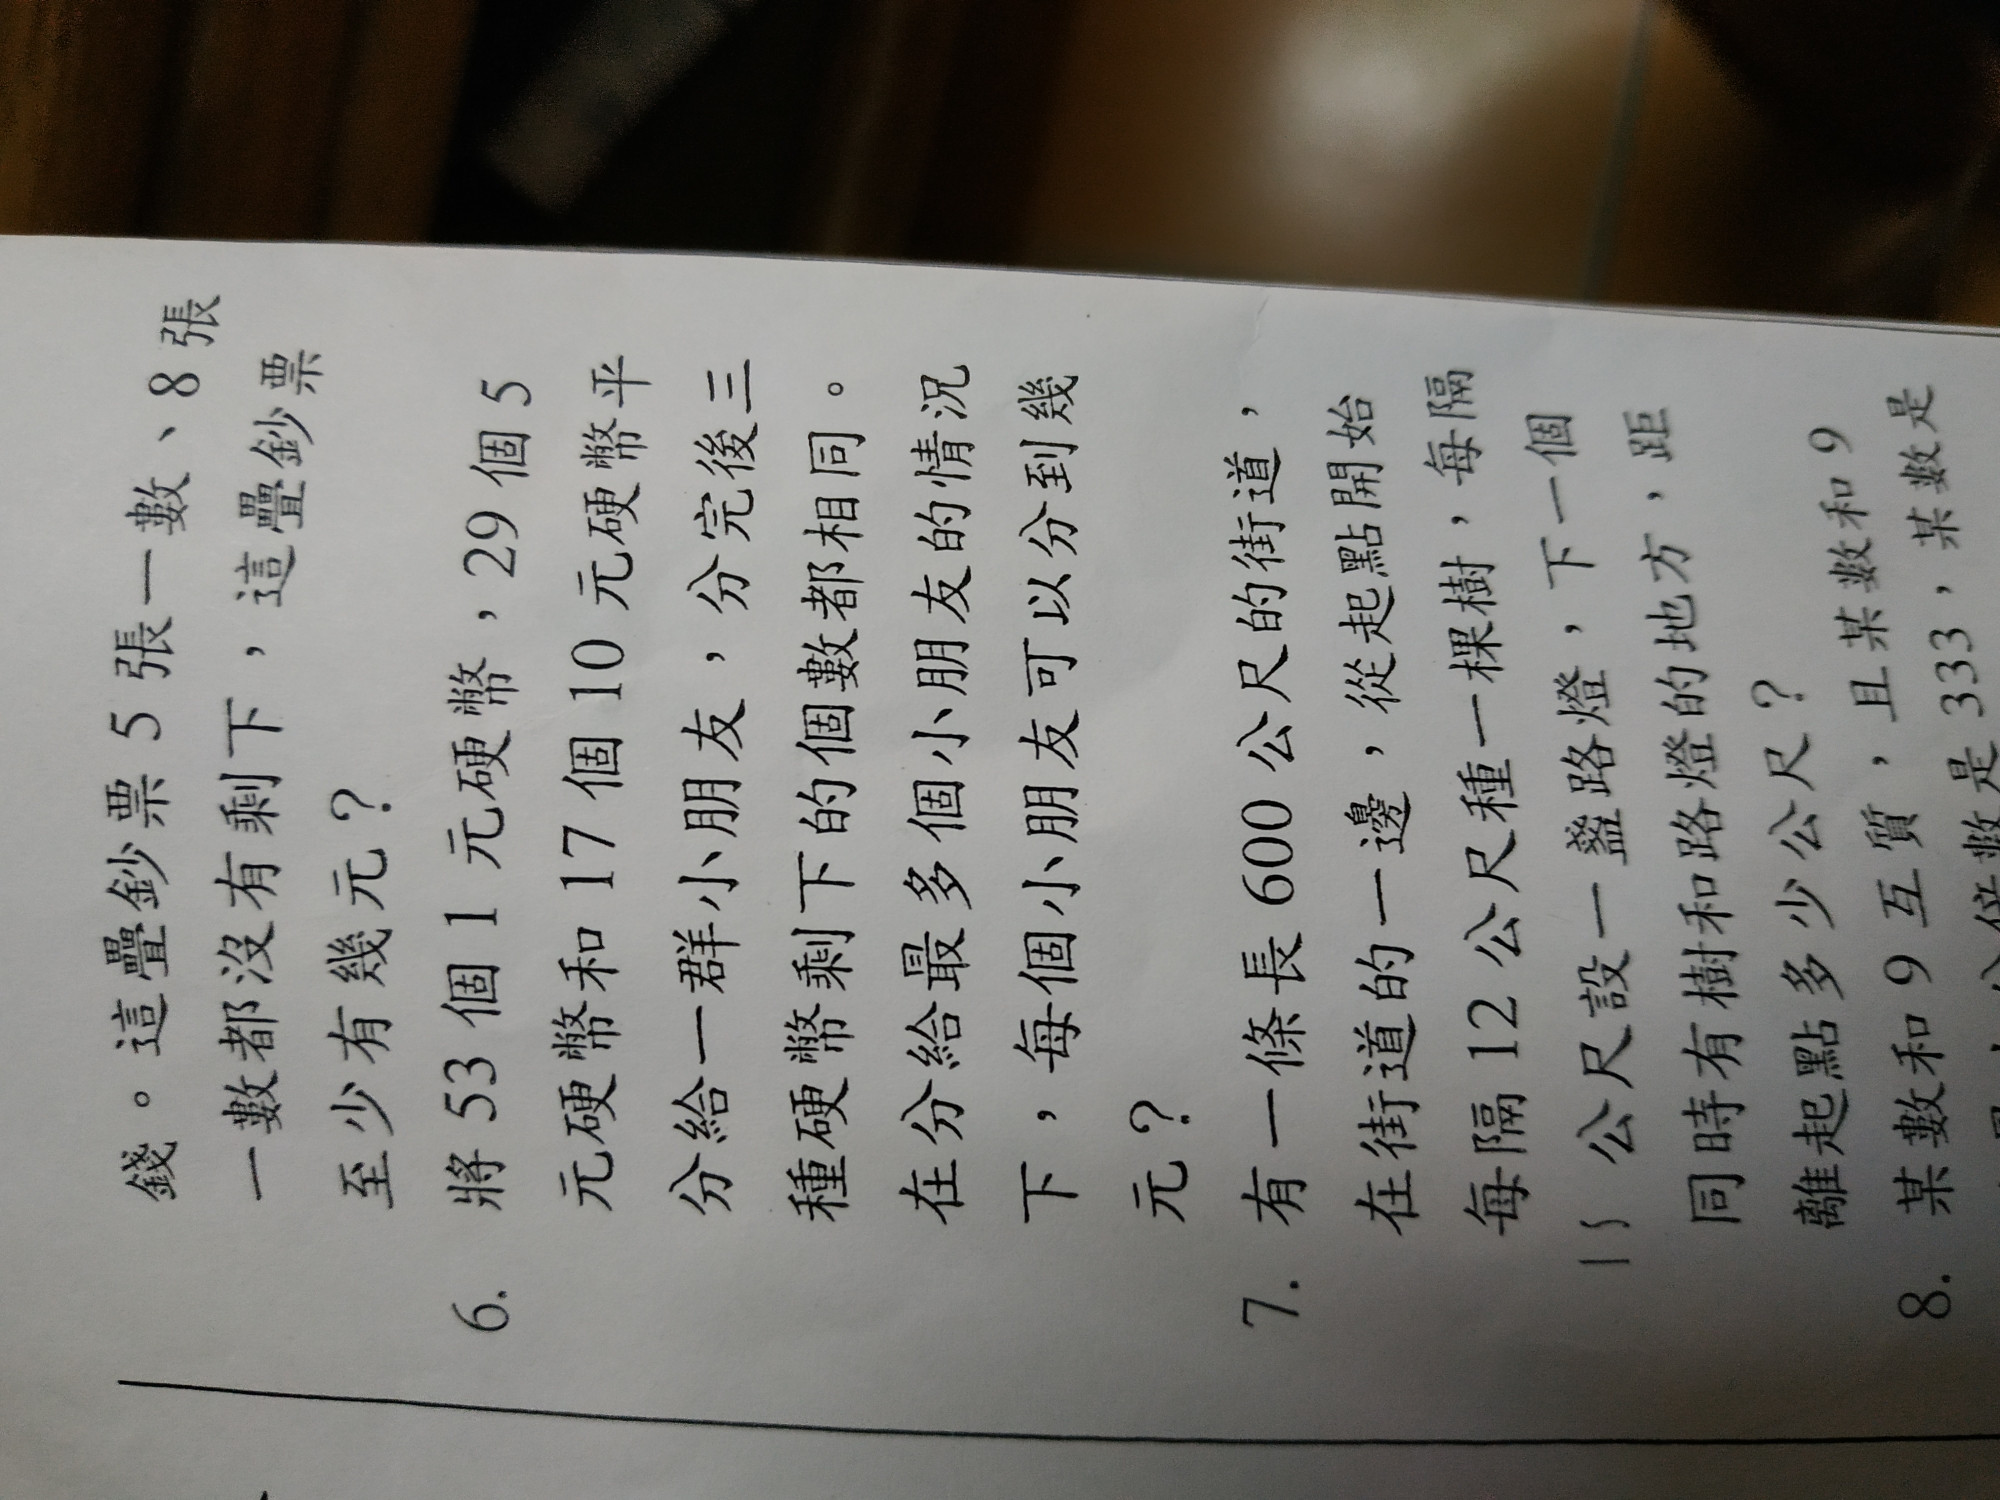 錢。這疊鈔票 5 張一數、8 張
一數都沒有剩下，這疊鈔票
至少有幾元？
6. 將 53 個 1 元硬幣，29 個 5
元硬幣和 17 個 10 元硬幣平
分給一群小朋友，分完後三
種硬幣剩下的個數都相同。
在分給最多個小朋友的情況
下，每個小朋友可以分到幾
元？
7. 有一條長 600 公尺的街道，
在街道的一邊，從起點開始
每隔 12 公尺種一棵樹，每隔
15 公尺設一盞路燈，下一個
同時有樹和路燈的地方，距
離起點多少公尺？
8. 某數和 9 互質，且某數和 9
公倍數是 333，某數是